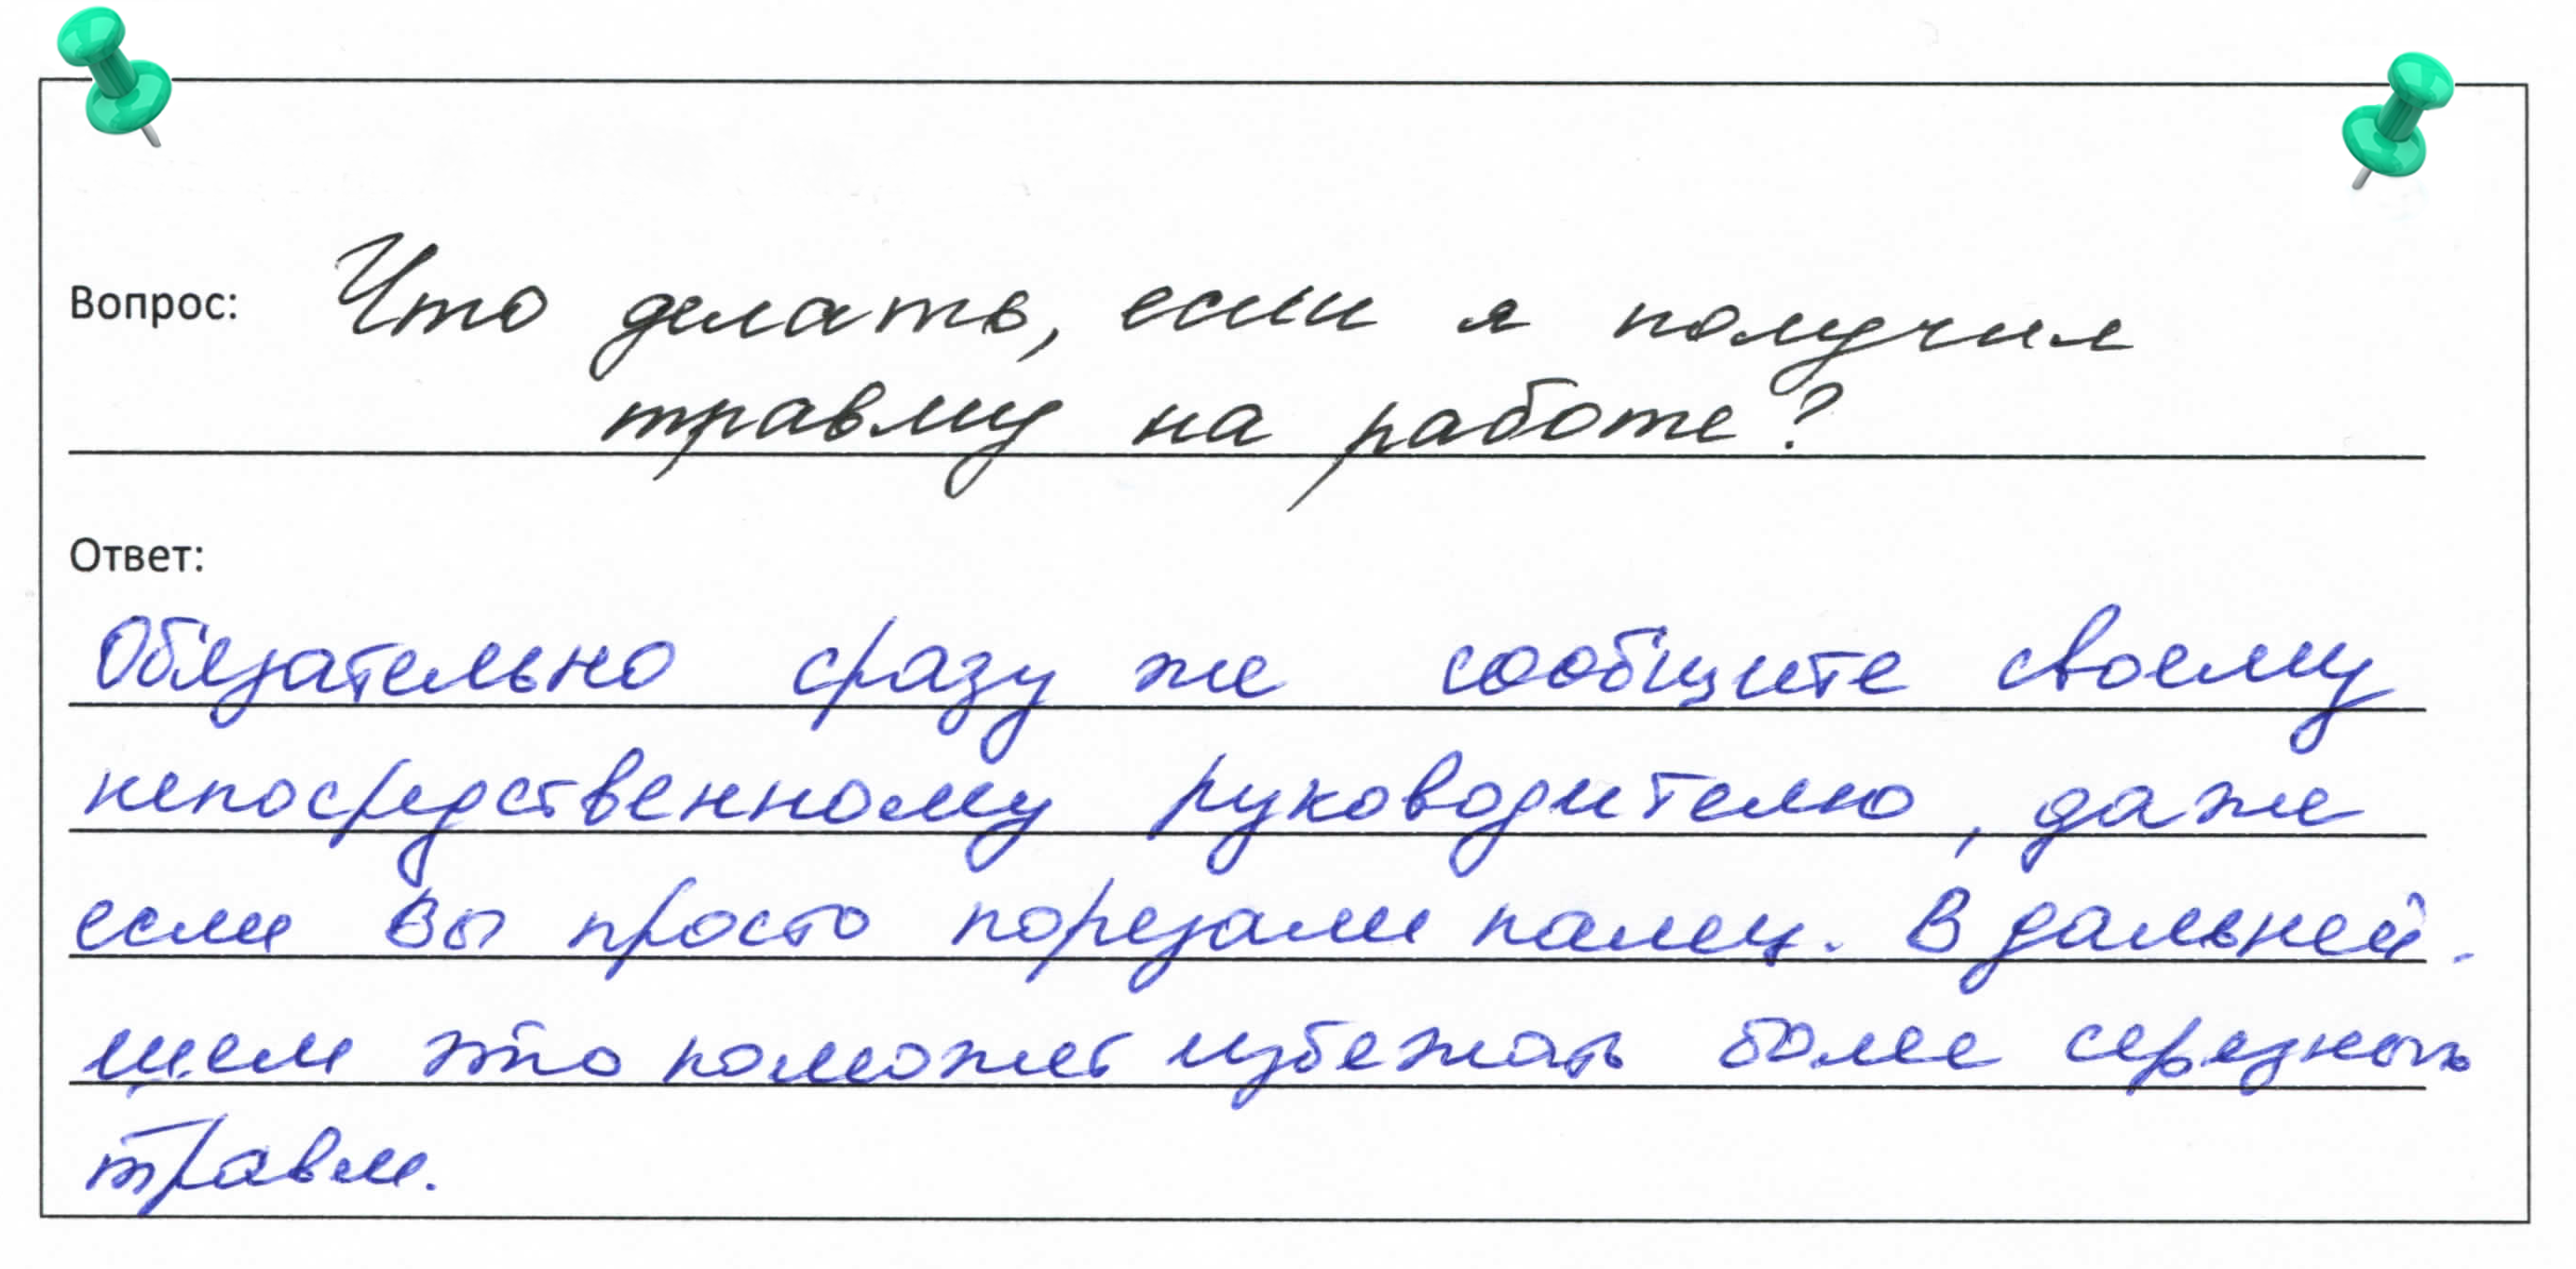 Вопрос: Что делать, если я получил
травму на работе?
Ответ:
Обязательно сразу же сообщите своему
непосредственному руководителю, даже
если Вы просто порезали палец. В дальней-
шем это поможет избежать более серезных
травм.